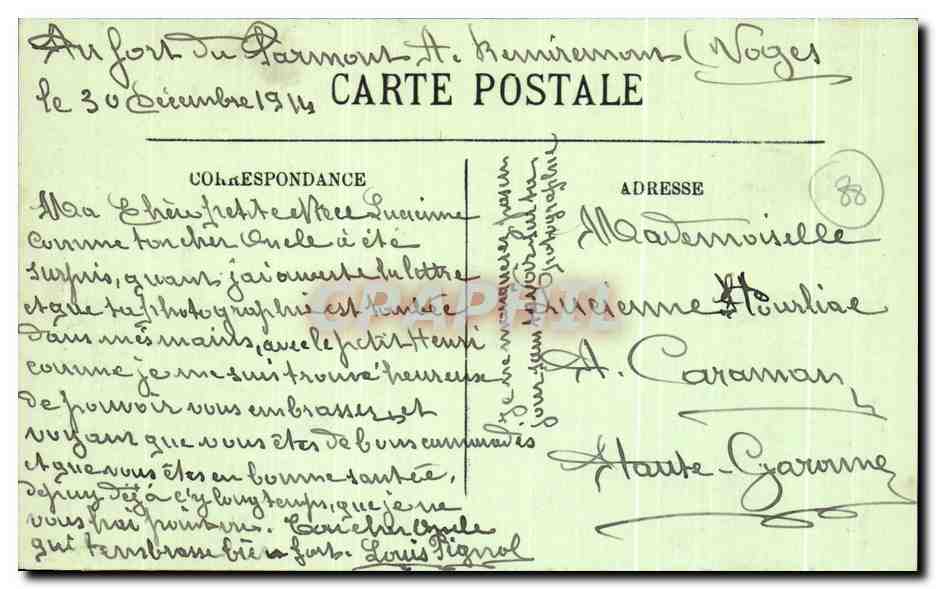 Au fort du Parmont A. Remiremont (Voges
le 30 Décembre 1914
CARTE POSTALE
CORRESPONDANCE
Ma Chère petite Niece Lucienne
comme ton cher Oncle à été
surpis, quant j'ai ouverte la lettre
et que ta photographie est tombée
dans mes mains, avec le petit Henri
comme je me suis trouvé heureuse
de pouvoir vous embrasser, et
voyant que vous êtes de bons cammarades
et que vous êtes en bonne santée,
depuy déjà c'y longtemps, que je ne
vous hai point vu. Ton cher Oncle
qui t'embrasse bien fort. Louis Pignol
je ne manquerez pas un
jour sans te voir sur ta
photographie
ADRESSE
88
Mademoiselle
Lucienne Hourliac
A. Caraman
Haute-Garonne
CPAPHIL